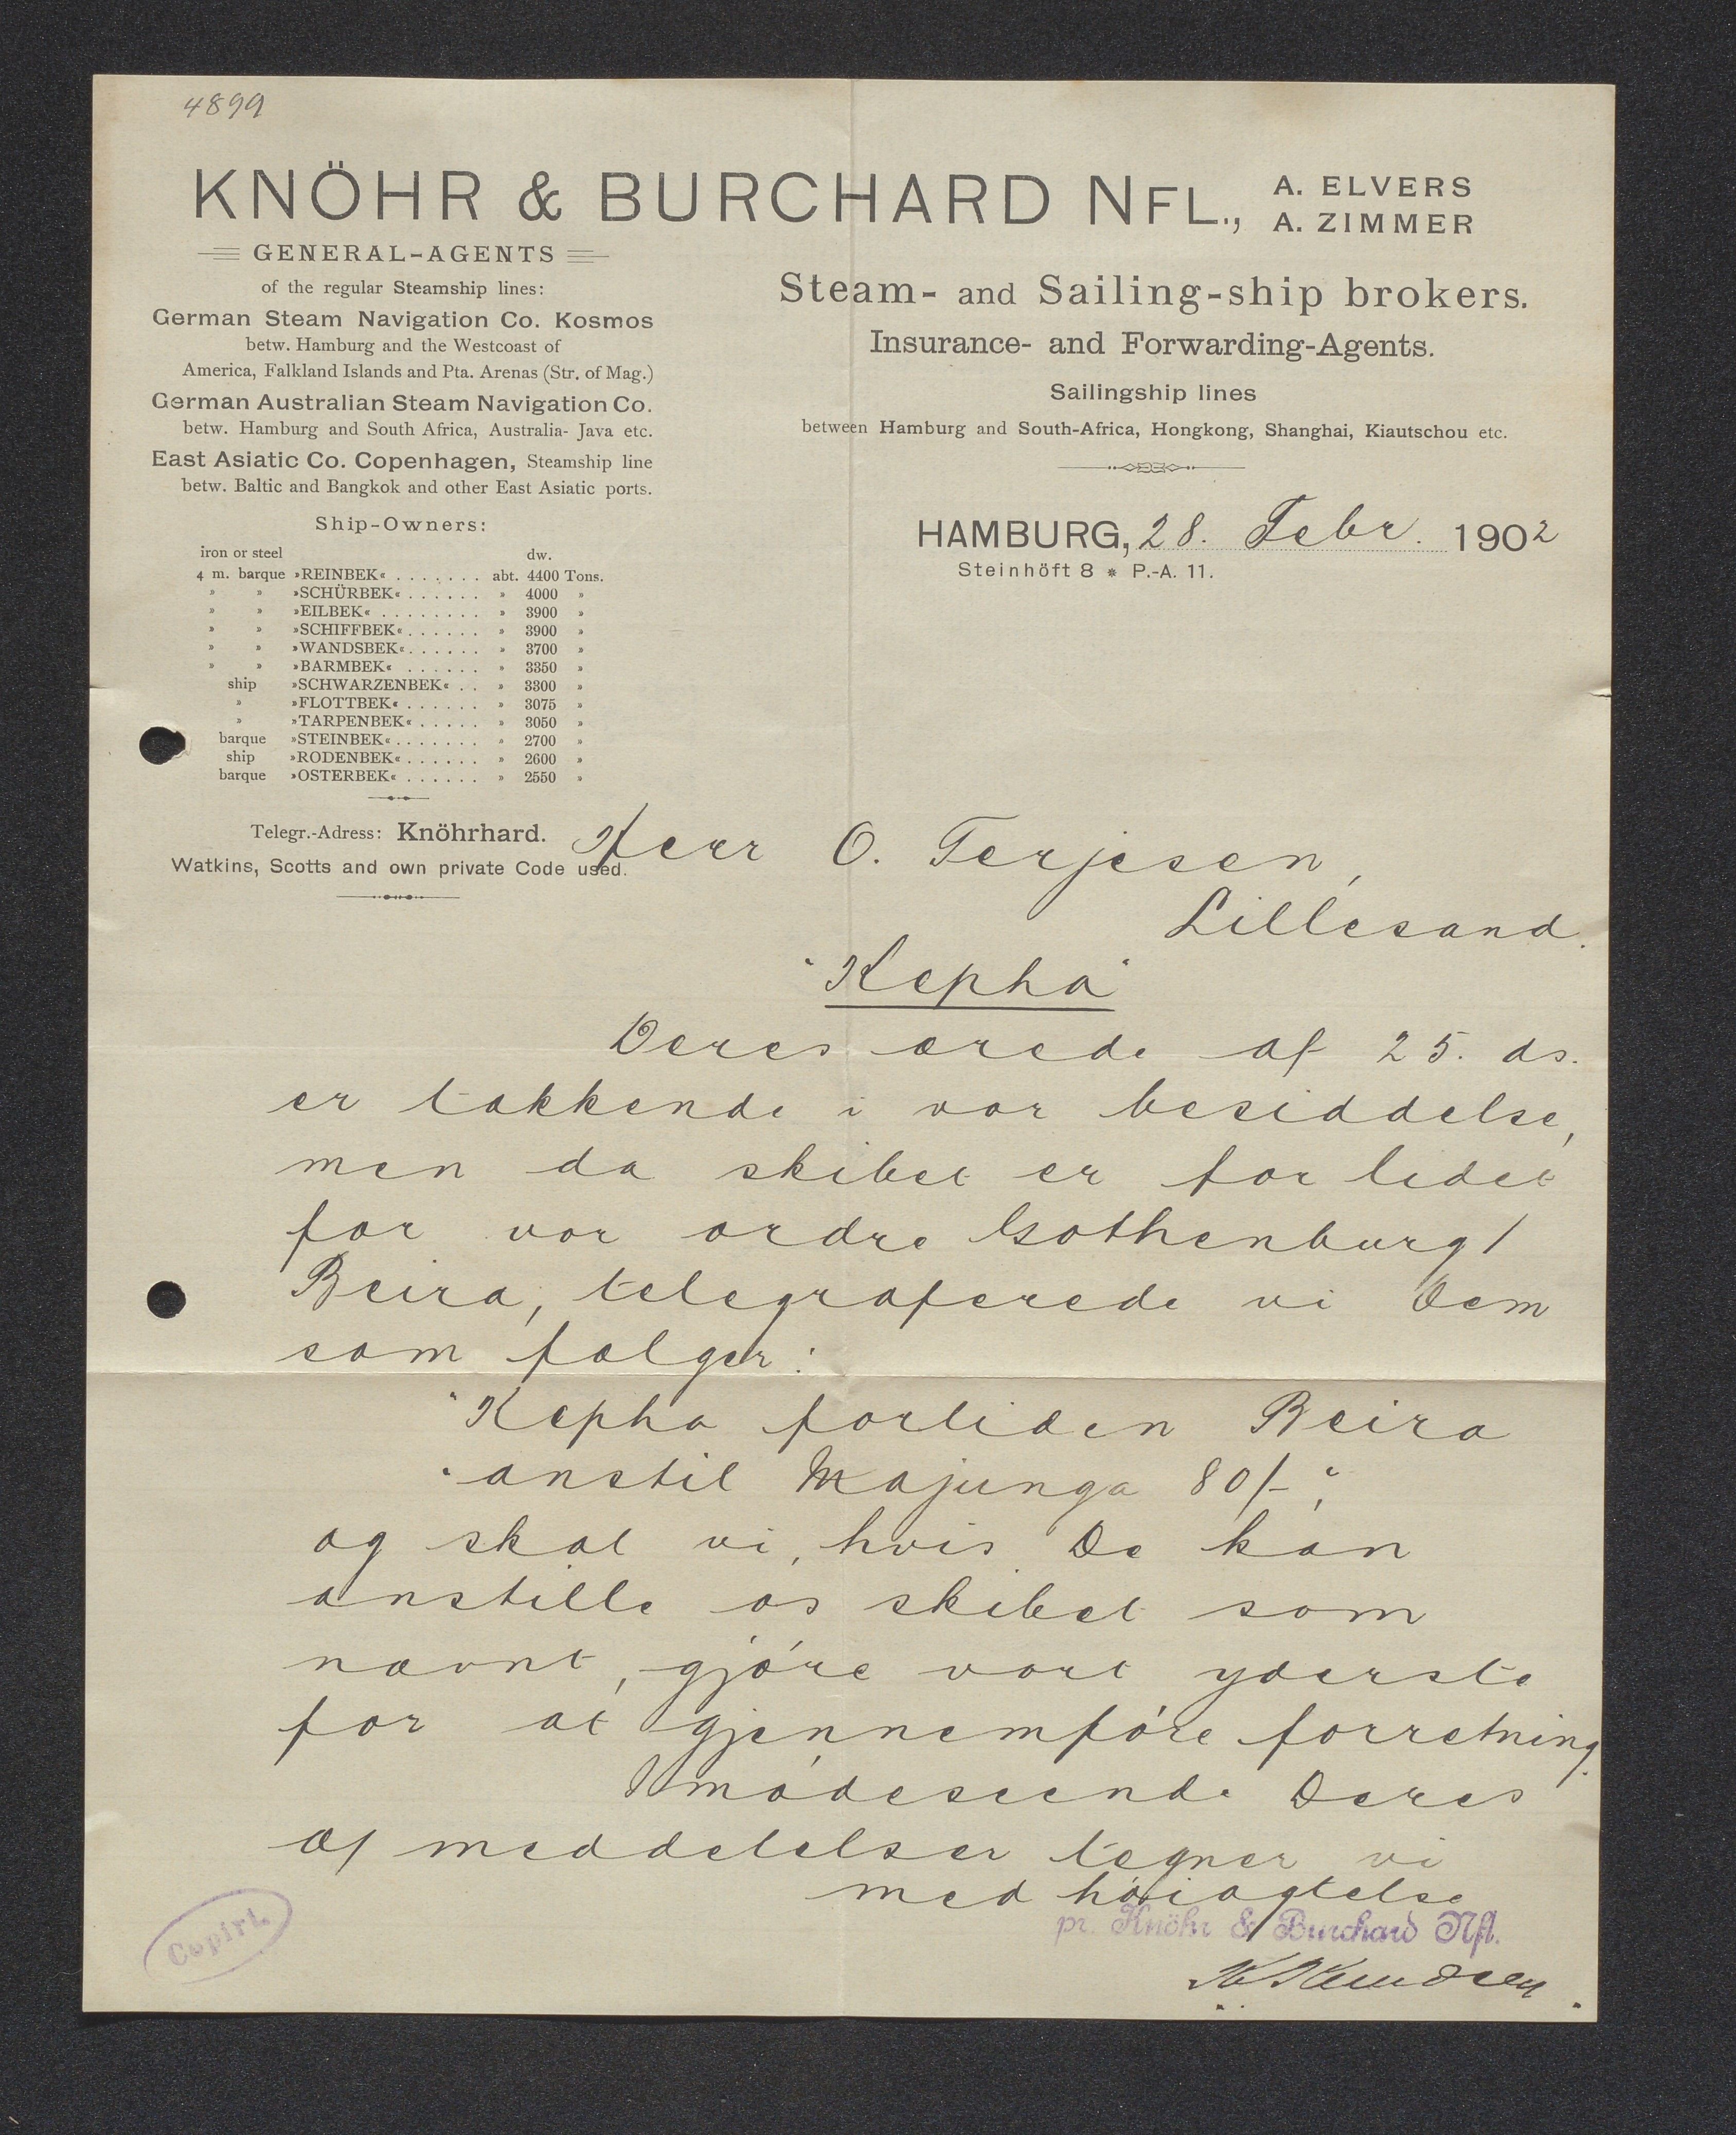 4899
KNÖHR & BURCHARD NFL.,
A. ELVERS
A. ZIMMER
GENERAL-AGENTS
of the regular Steamship lines:
German Steam Navigation Co. Kosmos
betw. Hamburg and the Westcoast of
America, Falkland Islands and Pta. Arenas (Str. of Mag.)
German Australian Steam Navigation Co.
betw. Hamburg and South Africa, Australia- Java etc.
East Asiatic Co. Copenhagen, Steamship line
betw. Baltic and Bangkok and other East Asiatic ports.
Ship-Owners:
iron or steel dw.
4 m. barque »REINBEK« . . . . . . . abt. 4400 Tons.
» » »SCHÜRBEK« . . . . . . » 4000 »
» » »EILBEK« . . . . . . . . » 3900 »
» » »SCHIFFBEK« . . . . . . » 3900 »
» » »WANDSBEK« . . . . . . » 3700 »
» » »BARMBEK« . . . . . . » 3350 »
ship »SCHWARZENBEK« . . » 3300 »
» »FLOTTBEK« . . . . . . » 3075 »
» »TARPENBEK« . . . . . » 3050 »
barque »STEINBEK« . . . . . . . » 2700 »
ship »RODENBEK« . . . . . . » 2600 »
barque »OSTERBEK« . . . . . . » 2550 »
Telegr.-Adress: Knöhrhard.
Watkins, Scotts and own private Code used.
Steam- and Sailing-ship brokers.
Insurance- and Forwarding-Agents.
Sailingship lines
between Hamburg and South-Africa, Hongkong, Shanghai, Kiautschou etc.
HAMBURG, 28. Febr. 1902
Steinhöft 8 * P.-A. 11.
Herr O. Terjesen,
Lillesand.
"Kepha"
Deres ærede af 25. ds.
er takkende i vor besiddelse,
men da skibet er for lidet
for vor ordre Gothenburg/
Beira, telegraferede vi Dem
som følger:
"Kepha forliden Beira
"anstil Majunga 80/-",
og skal vi, hvis De kan
anstille os skibet som
nævnt, gjóre vort yderste
for at gjennemfóre forretning.
Imódeseende Deres
af meddelelser tegner vi
med hóiagtelse
pr. Knöhr & Burchard Nfl.
K Knudsen
Copirt.